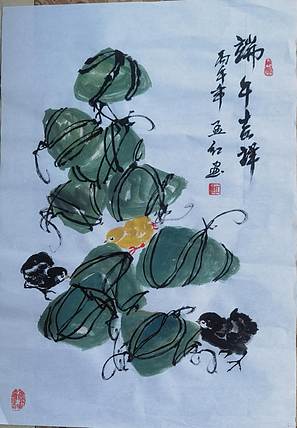 端午吉祥
丙午年 孟红画